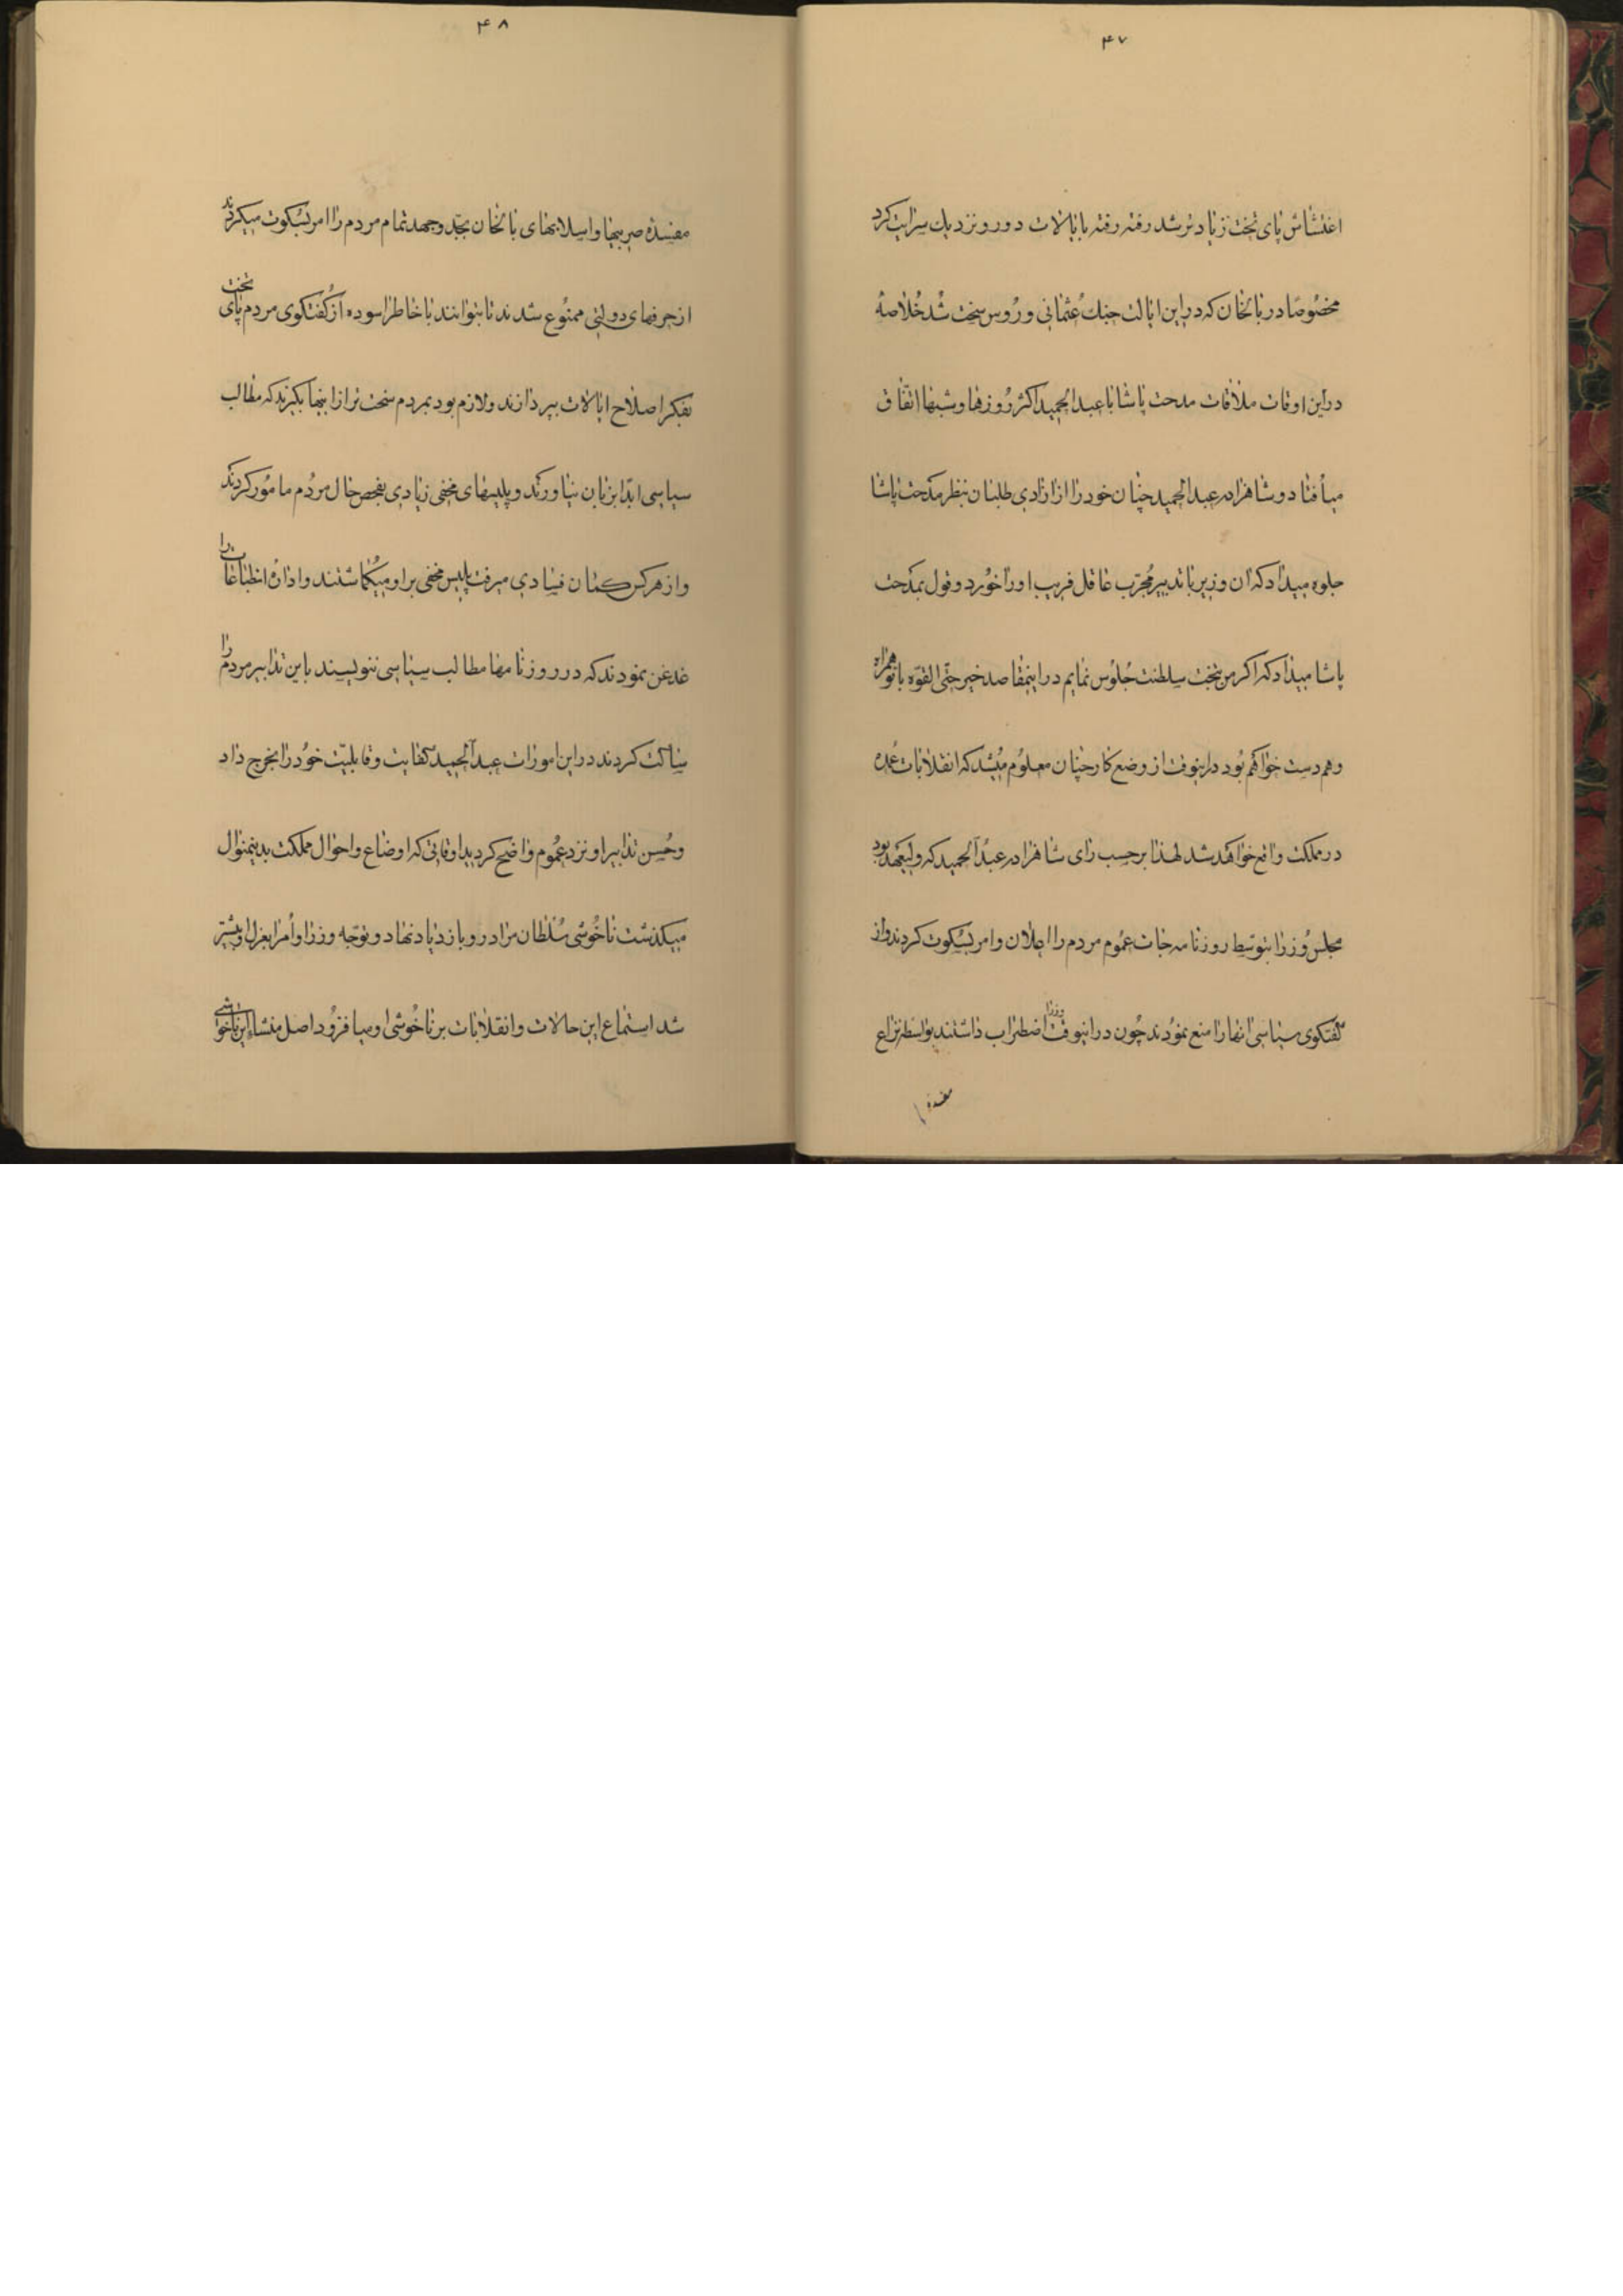 ۴۷
اغتشاش پای تخت زیادتر شد رفته رفته بایالات دور و نزدیک سرایت کرد
مخصوصا در بالخان که در این ایالت جنک عثمانی و روس سخت شد خلاصه
در این اوقات ملاقات مدحت پاشا با عبدالحمید اکثر روزها و شبها اتفاق
میافتاد و شاهزاده عبدالحمید چنان خود را از ازادی طلبان بنظر مدحت پاشا
جلوه میداد که ان وزیر با تدبیر مجرب عاقل فریب او را خورد و قول بمدحت
پاشا میداد که اکر من بتخت سلطنت جلوس نمایم در اینمقاصد خیر حتی القوه با تو همراه
و هم دست خواهم بود در اینوقت از وضع کار چنان معلوم میشد که انقلابات عمده
در مملکت واقع خواهد شد لهذا بر حسب رای شاهزاده عبدالحمید که ولیعهد بود
مجلس وزرا بتوسط روزنامه جات عموم مردم را اعلان و امر بسکوت کردند و از
کفتکوی سیاسی انها را منع نمودند چون در اینوقت وزرا اضطراب داشتند بواسطه نزاع
مفسده
۴۸
مفسده صربیها و اسلابهای بالخان بجد و جهد تمام مردم را امر بسکوت میکردند
از حرفهای دولتی ممنوع شدند تا بتوانند با خاطر اسوده از کفتکوی مردم پای تخت
بفکر اصلاح ایالات بپردازند و لازم بود بمردم سخت تر از اینها بکیرند که مطالب
سیاسی ابدا بزبان نیاورند و پلیسهای مخفی زیادی بفحص حال مردم مامور کردند
و از هر کس کمان فسادی میرفت پلیس مخفی بر او میکماشتند و اداره انطباعات را
غدغن نمودند که در روزنامها مطالب سیاسی ننویسند باین تدابیر مردم را
ساکت کردند در این امورات عبدالحمید کفایت و قابلیت خود را بخرج داد
و حسن تدابیر او نزد عموم واضح کردید اوقاتی که اوضاع و احوال مملکت بدینمنوال
میکذشت ناخوشی سلطان مراد رو بازدیاد نهاد و توجه وزرا و امرا بعزل او بیشتر
شد استماع این حالات و انقلابات بر ناخوشی او میافزود اصل منشاء این ناخوشی